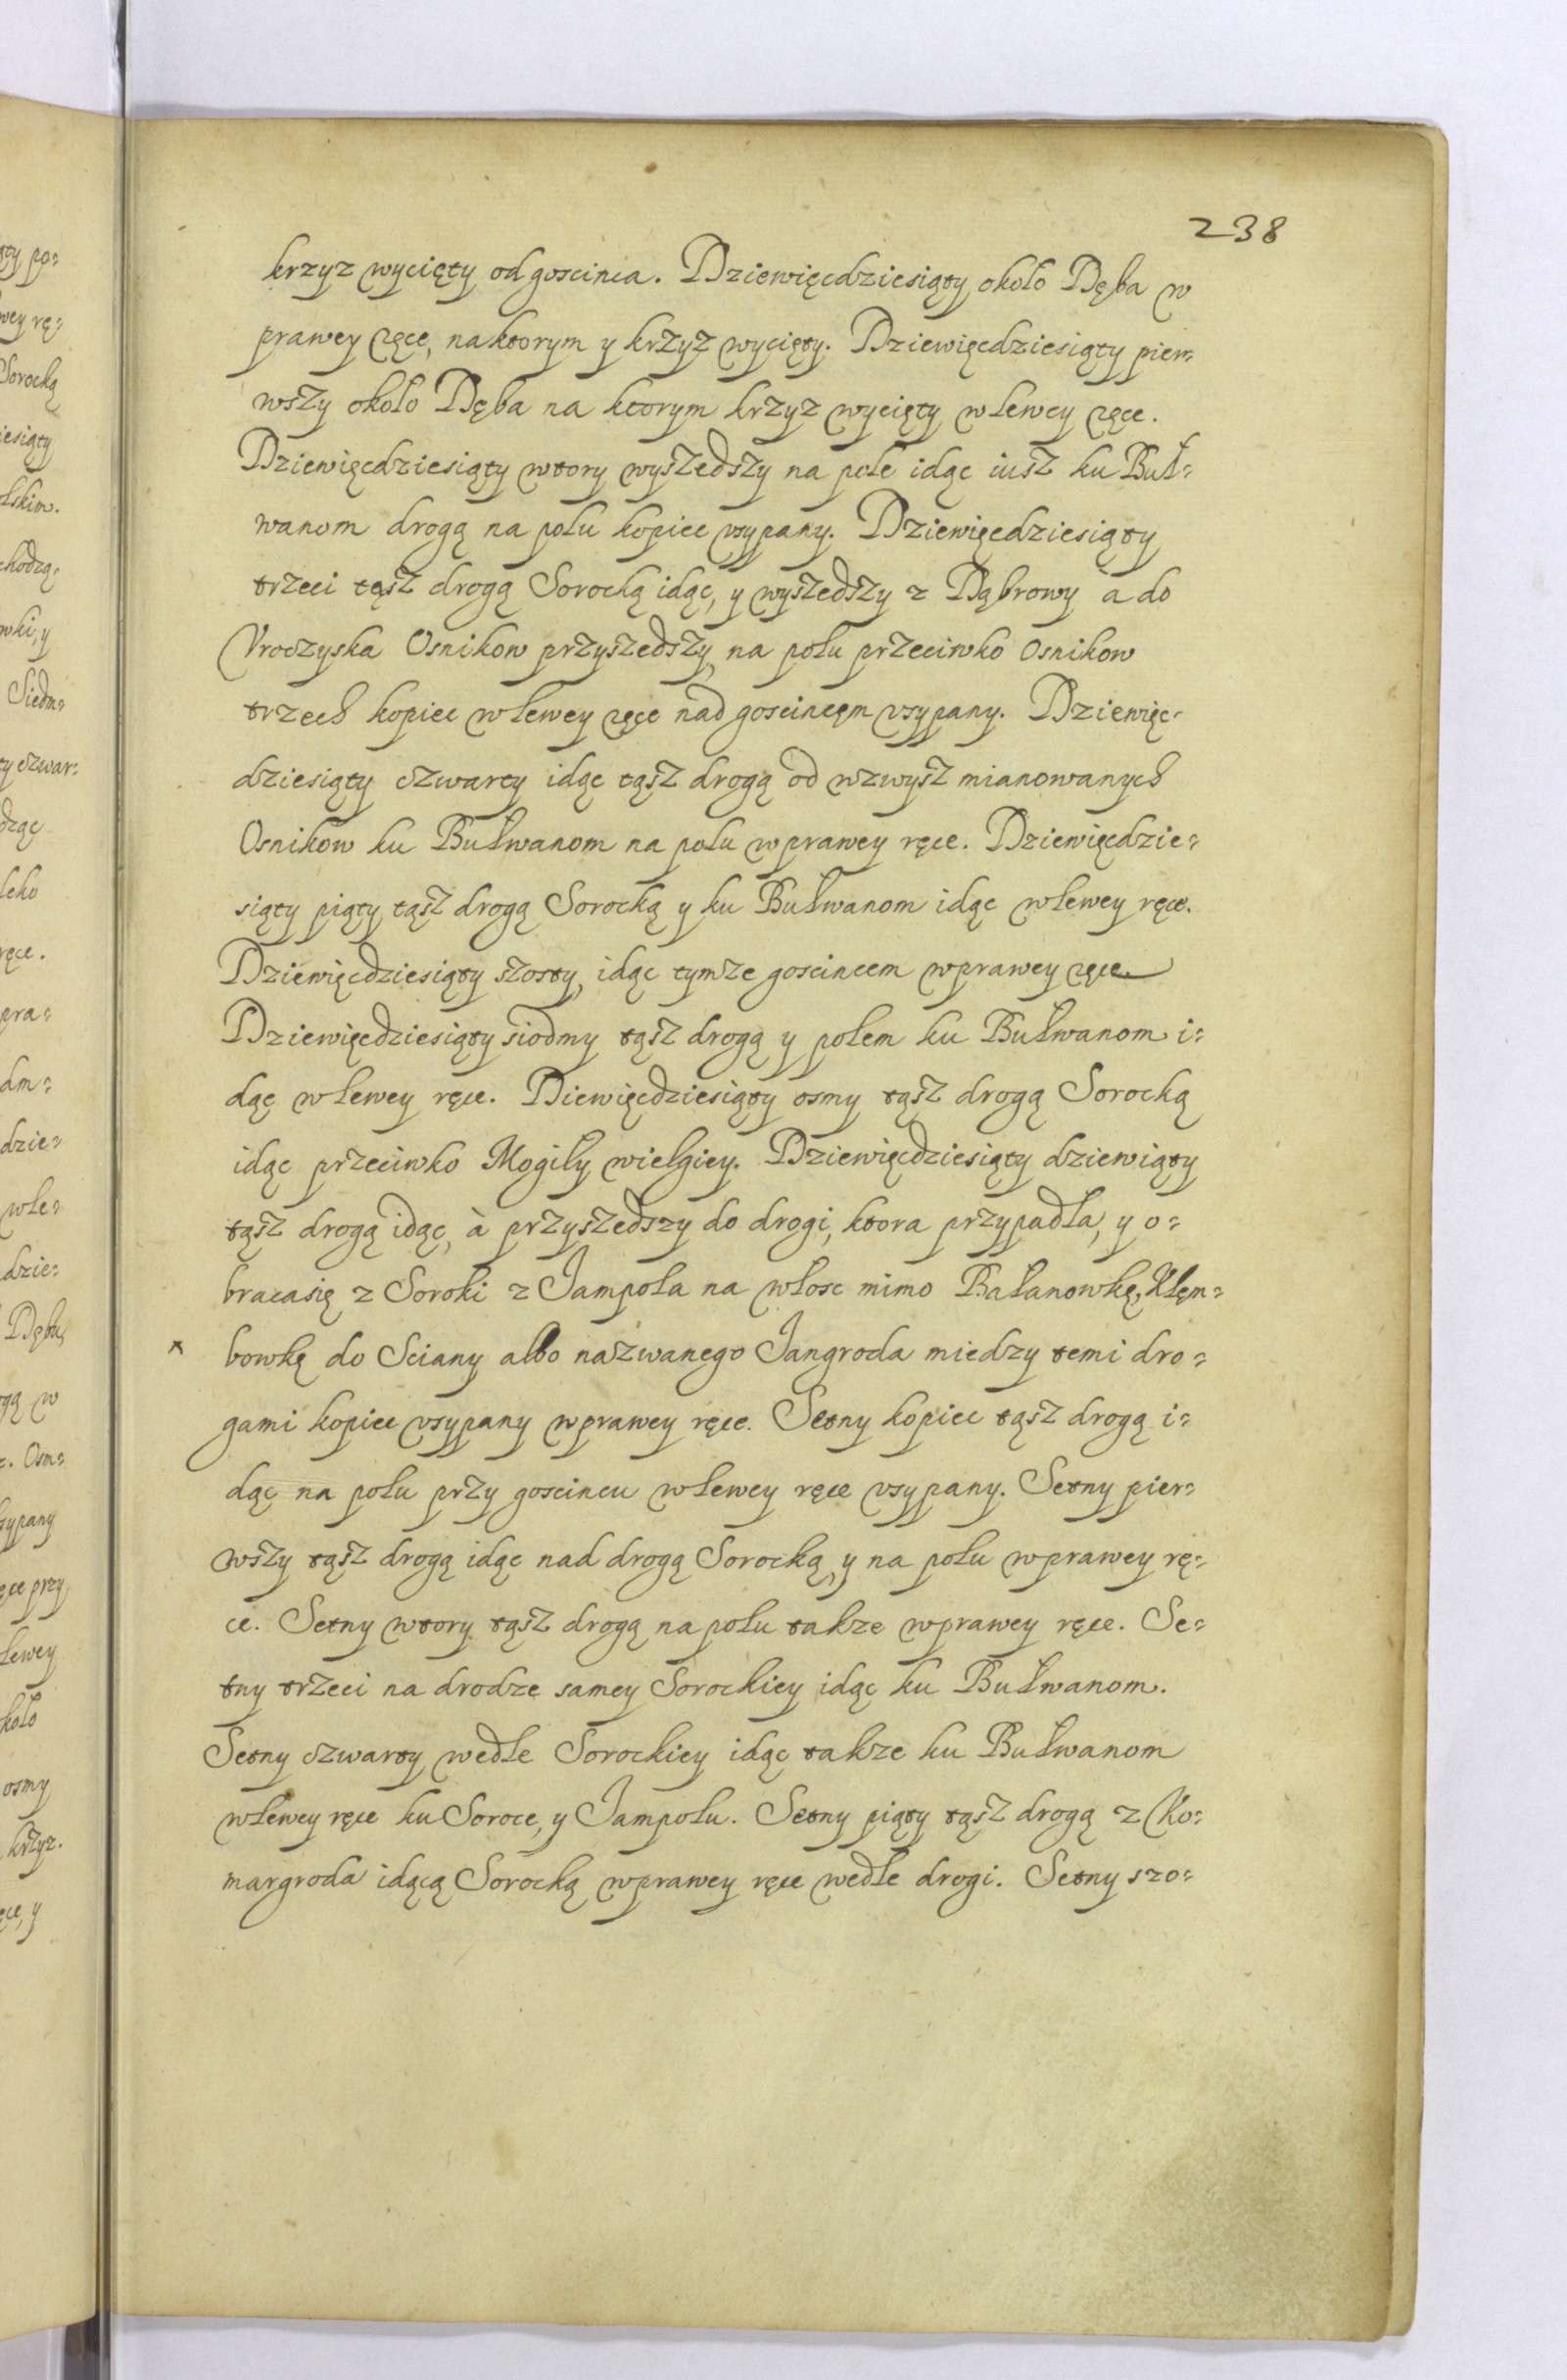 238
krzyz wycięty od goscinca. Dziewięcdziesiąty około Dęba w
prawey ręce, na ktorym y krzyz wycięty. Dziewięcdziesiąty pier=
wszy około Dęba na ktorym krzyz wycięty w lewey ręce.
Dziewięcdziesiąty wtory wyszedszy na pole idąc iusz ku Buł=
wanom drogą na polu kopiec vsypany. Dziewięcdziesiąty
trzeci tąsz drogą Sorocką idąc, y wyszedszy z Dąbrowy à do
Vroczyska Osnikow przyszedszy, na polu przeciwko Osnikow
trzech kopiec w lewey ręce nad goscincęm vsypany. Dziewięc=
dziesiąty czwarty idąc tąsz drogą od wzwysz mianowanych
Osnikow ku Bułwanom na polu w prawey ręce. Dziewięcdzie=
siąty piąty tąsz drogą Sorocką y ku Bułwanom idąc w lewey ręce.
Dziewięcdziesiąty szosty, idąc tymze goscincem w prawey ręce
Dziewięcdziesiąty siodmy tąsz drogą y polem ku Bułwanom i=
dąc w lewey ręce. Diewięcdziesiąty osmy tąsz drogą Sorocką
idąc przeciwko Mogiły wielgiey. Dziewięcdziesiąty dziewiąty
tąsz drogą idąc, à przyszedszy do drogi, ktora przypadła, y o=
braca się z Soroki z Jampola na włosc mimo Bałanowkę, Kłęm=
x bowkę do Sciany albo nazwanego Jangroda miedzy temi dro=
gami kopiec vsypany w prawey ręce. Setny kopiec tąsz drogą i=
dąc na polu przy goscincu w lewey ręce vsypany. Setny pier=
wszy tąsz drogą idąc nad drogą Sorocką, y na polu w prawey rę=
ce. Setny wtory tąsz drogą na polu takze w prawey ręce. Se=
tny trzeci na drodze samey Sorockiey idąc ku Bułwanom.
Setny czwarty wedle Sorockiey idąc takze ku Bułwanom
w lewey ręce ku Soroce, y Jampolu. Setny piąty tąsz drogą z Ko=
margroda idącą Sorocką w prawey ręce wedle drogi. Setny szo=